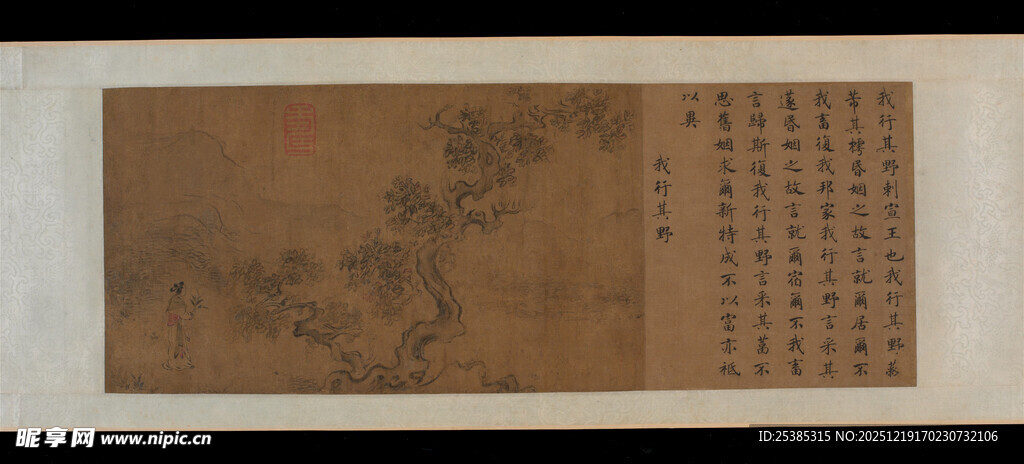 我行其野刺宣王也我行其野蔽
芾其樗昏姻之故言就爾居爾不
我畜復我邦家我行其野言采其
蓫昏姻之故言就爾宿爾不我畜
言歸斯復我行其野言采其葍不
思舊姻求爾新特成不以富亦祗
以異
我行其野
昵享网 www.nipic.cn
ID:25385315 NO:20251219170230732106